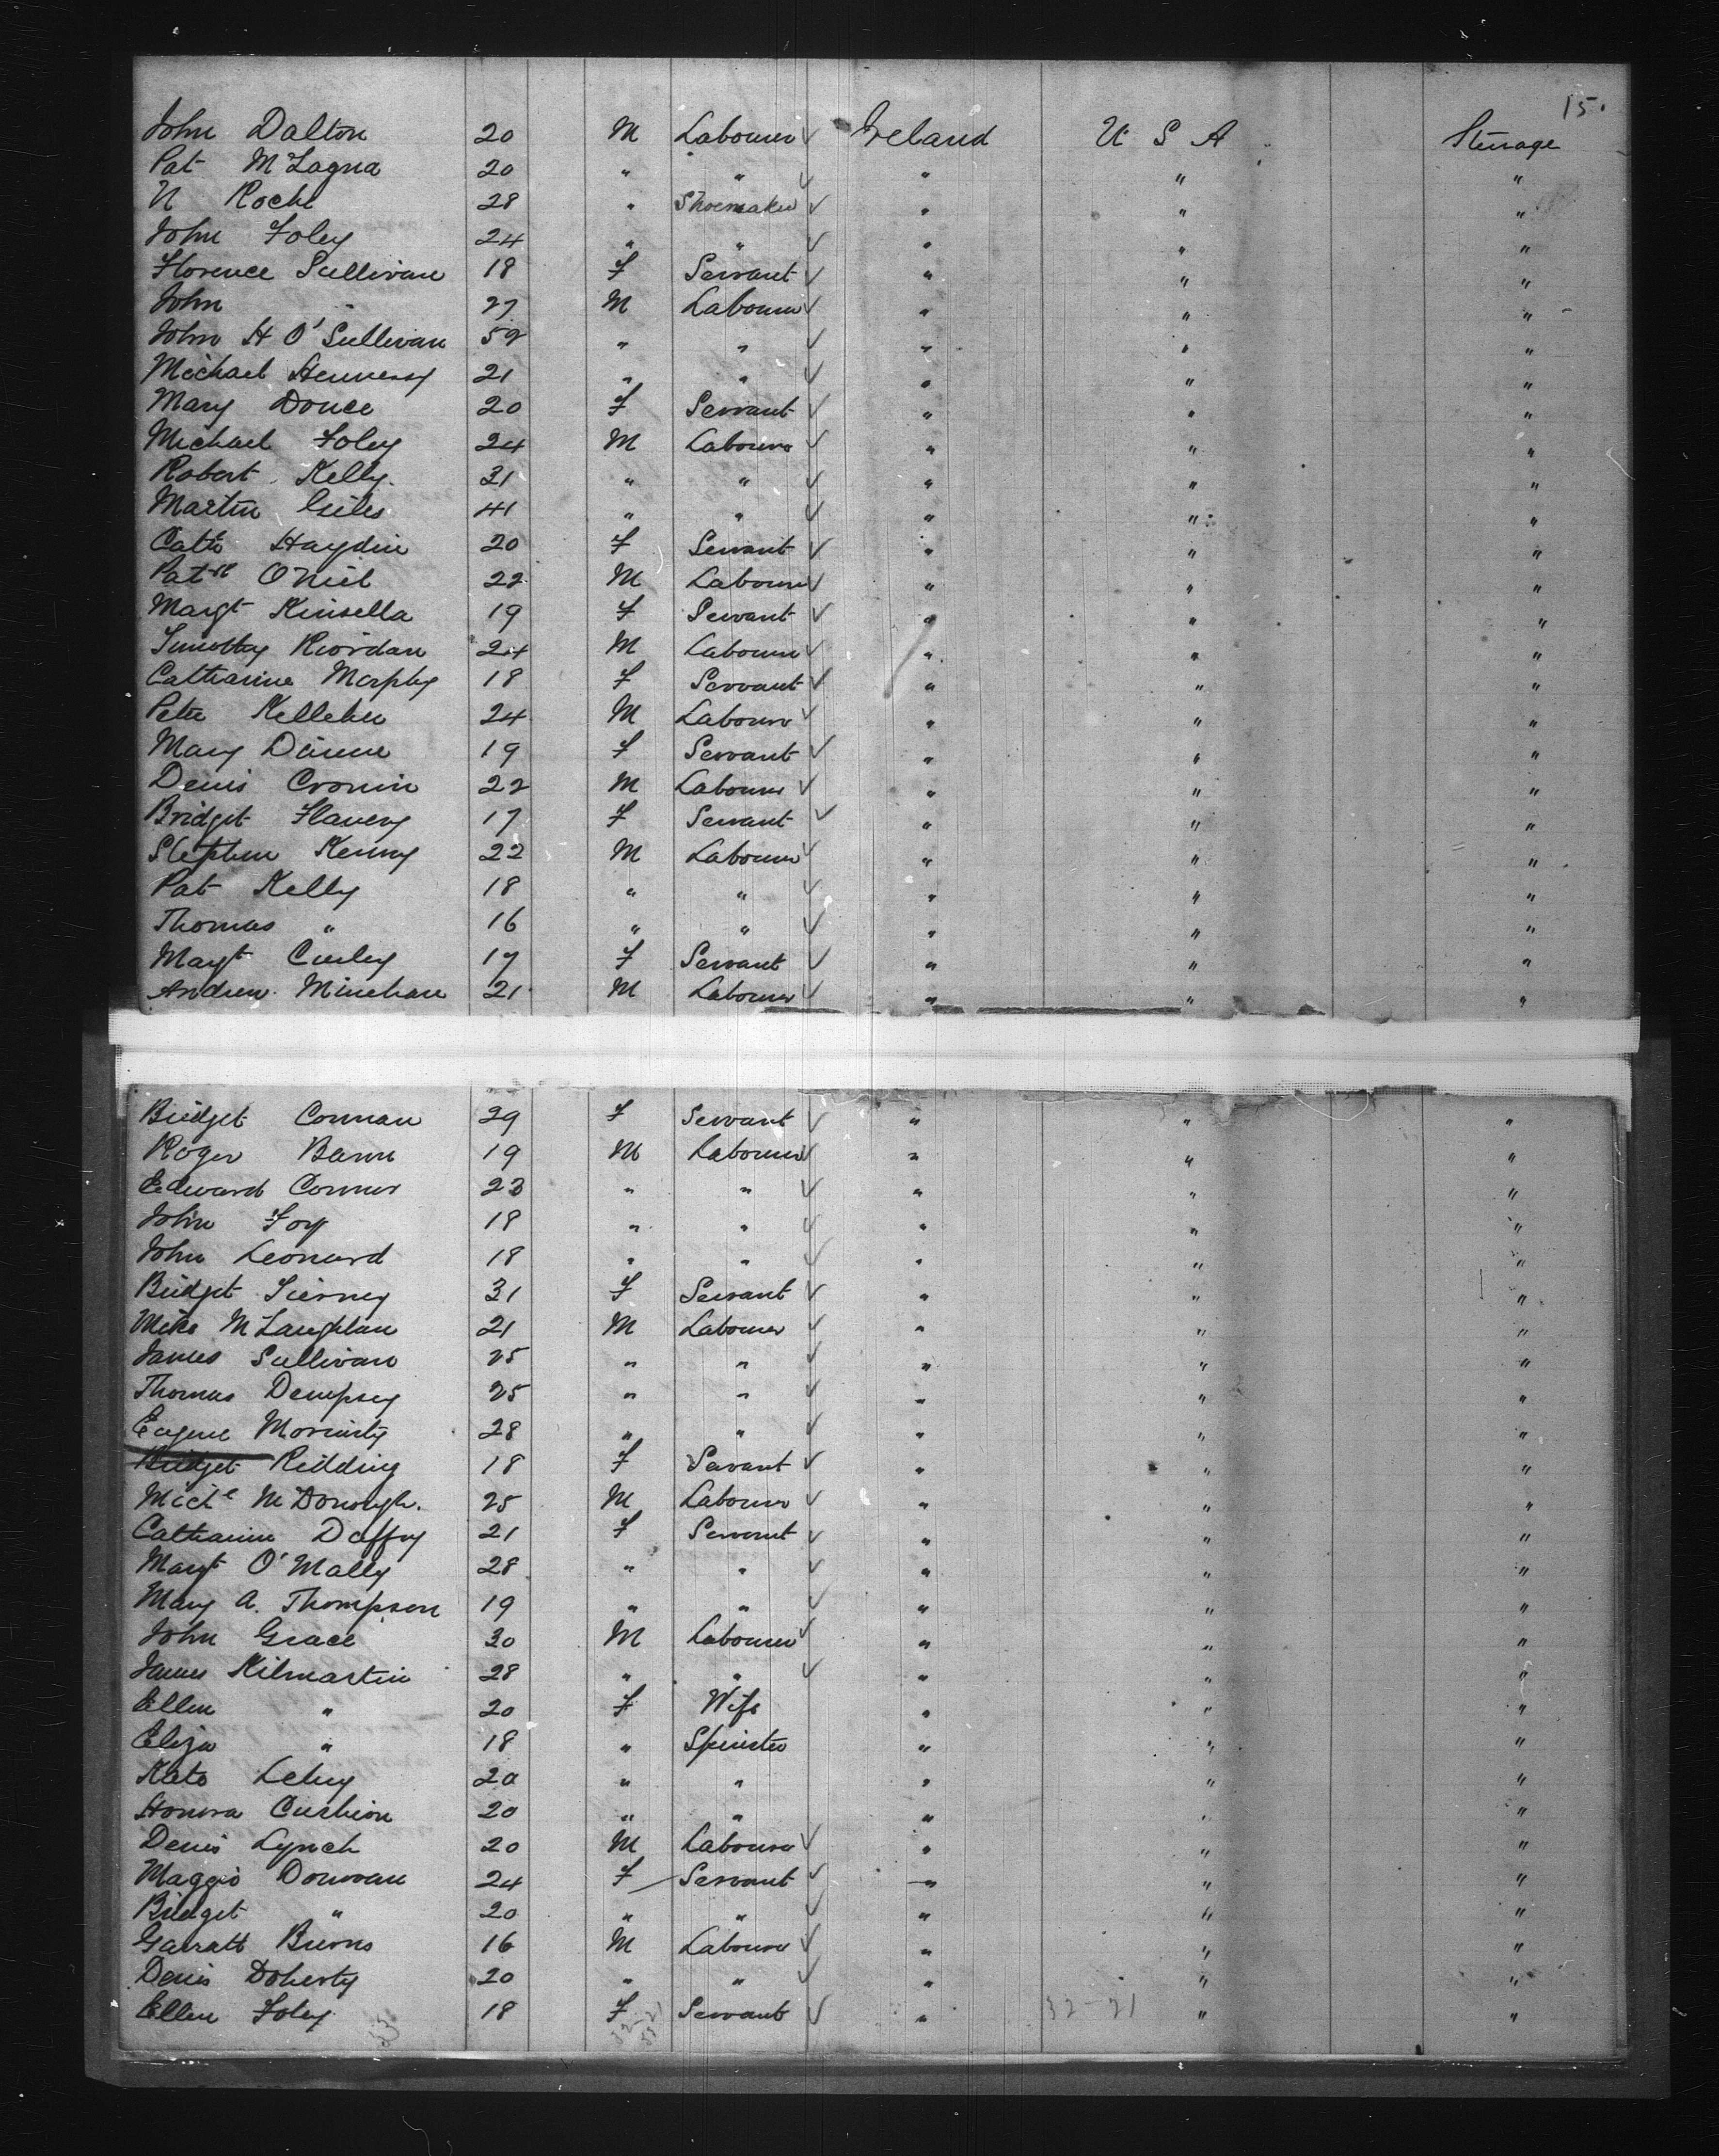 15.
John Dalton 20 M Labourer ✓ Ireland U S A Steerage
Pat McLagna 20 " " ✓ " " "
N Roche 28 " Shoemaker ✓ " " "
John Foley 24 " " ✓ " " "
Florence Sullivan 18 F Servant ✓ " " "
John " 27 M Labourer ✓ " " "
John H O'Sullivan 52 " " ✓ " " "
Michael Hennessy 21 " " ✓ " " "
Mary Douce 20 F Servant ✓ " " "
Michael Foley 24 M Labourer ✓ " " "
Robert Kelly 31 " " ✓ " " "
Martin Giles 41 " " ✓ " " "
Cath Haydin 20 F Servant ✓ " " "
Patk O'Niel 22 M Labourer ✓ " " "
Margt Kinsella 19 F Servant ✓ " " "
Timothy Riordan 24 M Labourer ✓ " " "
Catharine Morphy 18 F Servant ✓ " " "
Peter Kelleher 24 M Labourer ✓ " " "
Mary Dinne 19 F Servant ✓ " " "
Denis Cronin 22 M Labourer ✓ " " "
Bridget Flavery 17 F Servant ✓ " " "
Stephen Kenny 22 M Labourer ✓ " " "
Pat Kelly 18 " " ✓ " " "
Thomas " 16 " " ✓ " " "
Margt Curley 17 F Servant ✓ " " "
Andrew Minehan 21 M Labourer ✓ " " "
Bridget Connan 29 F Servant ✓ " " "
Roger Bann 19 M Labourer ✓ " " "
Edward Connor 23 " " ✓ " " "
John Foy 18 " " ✓ " " "
John Leonard 18 " " ✓ " " "
Bridget Tierney 31 F Servant ✓ " " "
Mike McLaughlan 21 M Labourer ✓ " " "
James Sullivan 25 " " ✓ " " "
Thomas Dempsey 25 " " ✓ " " "
Eugene Moriarty 28 " " ✓ " " "
Bridget Ridding 18 F Servant ✓ " " "
Michl McDonough. 25 M Labourer ✓ " " "
Catharine Duffy 21 F Servant ✓ " " "
Margt O'Mally 28 " " ✓ " " "
Mary A. Thompson 19 " " ✓ " " "
John Grace 30 M Labourer ✓ " " "
James Kilmartin 28 " " ✓ " " "
Ellen " 20 F Wife " " "
Eliza " 18 " Spinster " " "
Kate Lehy 20 " " " " "
Honora Cushion 20 " " " " "
Denis Lynch 20 M Labourer ✓ " " "
Maggie Donovan 24 F Servant ✓ " " "
Bridget " 20 " " ✓ " " "
Garratt Burns 16 M Labourer ✓ " " "
Denis Doherty 20 " " ✓ " " "
Ellen Foley 18 F Servant ✓ " 32-21 " "